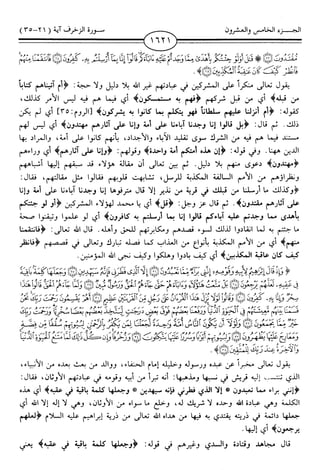 الجـــزء الخامس والعشرون
١٦٢١
سـورة الزخرف آية (٢١ -٣٥)
مُّقْتَدُونَ ۞ قَٰلَ أَوَلَوْ جِئْتُكُم بِأَهْدَىٰ مِمَّا وَجَدتُّمْ عَلَيْهِ ءَابَآءَكُمْ قَالُوٓا۟ إِنَّا بِمَآ أُرْسِلْتُم بِهِۦ كَٰفِرُونَ ۞ فَٱنتَقَمْنَا مِنْهُمْ
فَٱنظُرْ كَيْفَ كَانَ عَٰقِبَةُ ٱلْمُكَذِّبِينَ ۞
يقول تعالى منكراً على المشركين في عبادتهم غير الله بلا دليل ولا حجة: ﴿أم آتيناهم كتاباً
من قبله﴾ أي من قبل شركهم ﴿فهم به مستمسكون﴾ أي فيما هم فيه ليس الأمر كذلك،
كقوله: ﴿أم أنزلنا عليهم سلطاناً فهو يتكلم بما كانوا به يشركون﴾ [الروم: ٣٥] أي لم يكن
ذلك. ثم قال: ﴿بل قالوا إنا وجدنا آباءنا على أمة وإنا على آثارهم مهتدون﴾ أي ليس لهم
مستند فيما هم فيه من الشرك سوى تقليد الآباء والأجداد، بأنهم كانوا على أمة، والمراد بها
الدين ههنا. وفي قوله: ﴿إن هذه أمتكم أمة واحدة﴾ وقولهم: ﴿وإنا على آثارهم﴾ أي وراءهم
﴿مهتدون﴾ دعوى منهم بلا دليل. ثم بين تعالى أن مقالة هؤلاء قد سبقهم إليها أشباههم
ونظراؤهم من الأمم السالفة المكذبة للرسل، تشابهت قلوبهم فقالوا مثل مقالتهم، فقال:
﴿وكذلك ما أرسلنا من قبلك في قرية من نذير إلا قال مترفوها إنا وجدنا آباءنا على أمة وإنا
على آثارهم مقتدون﴾. ثم قال عز وجل: ﴿قل﴾ أي يا محمد لهؤلاء المشركين ﴿أو لو جئتكم
بأهدى مما وجدتم عليه آباءكم قالوا إنا بما أرسلتم به كافرون﴾ أي لو علموا وتيقنوا صحة
ما جئتهم به لما انقادوا لذلك لسوء قصدهم ومكابرتهم للحق وأهله. قال الله تعالى: ﴿فانتقمنا
منهم﴾ أي من الأمم المكذبة بأنواع من العذاب كما فصله تبارك وتعالى في قصصهم ﴿فانظر
كيف كان عاقبة المكذبين﴾ أي كيف بادوا وهلكوا وكيف نجى الله المؤمنين.
وَإِذْ قَالَ إِبْرَٰهِيمُ لِأَبِيهِ وَقَوْمِهِۦٓ إِنَّنِى بَرَآءٌ مِّمَّا تَعْبُدُونَ ۞ إِلَّا ٱلَّذِى فَطَرَنِى فَإِنَّهُۥ سَيَهْدِينِ ۞ وَجَعَلَهَا كَلِمَةًۢ بَاقِيَةً فِى
عَقِبِهِۦ لَعَلَّهُمْ يَرْجِعُونَ ۞ بَلْ مَتَّعْتُ هَٰٓؤُلَآءِ وَءَابَآءَهُمْ حَتَّىٰ جَآءَهُمُ ٱلْحَقُّ وَرَسُولٌ مُّبِينٌ ۞ وَلَمَّا جَآءَهُمُ ٱلْحَقُّ قَالُوا۟ هَٰذَا
سِحْرٌ وَإِنَّا بِهِۦ كَٰفِرُونَ ۞ وَقَالُوا۟ لَوْلَا نُزِّلَ هَٰذَا ٱلْقُرْءَانُ عَلَىٰ رَجُلٍ مِّنَ ٱلْقَرْيَتَيْنِ عَظِيمٍ ۞ أَهُمْ يَقْسِمُونَ رَحْمَتَ رَبِّكَ نَحْنُ
قَسَمْنَا بَيْنَهُم مَّعِيشَتَهُمْ فِى ٱلْحَيَوٰةِ ٱلدُّنْيَا وَرَفَعْنَا بَعْضَهُمْ فَوْقَ بَعْضٍ دَرَجَٰتٍ لِّيَتَّخِذَ بَعْضُهُم بَعْضًا سُخْرِيًّا وَرَحْمَتُ رَبِّكَ خَيْرٌ
مِّمَّا يَجْمَعُونَ ۞ وَلَوْلَآ أَن يَكُونَ ٱلنَّاسُ أُمَّةً وَٰحِدَةً لَّجَعَلْنَا لِمَن يَكْفُرُ بِٱلرَّحْمَٰنِ لِبُيُوتِهِمْ سُقُفًا مِّن فِضَّةٍ
وَمَعَارِجَ عَلَيْهَا يَظْهَرُونَ ۞ وَلِبُيُوتِهِمْ أَبْوَٰبًا وَسُرُرًا عَلَيْهَا يَتَّكِـُٔونَ ۞ وَزُخْرُفًا وَإِن كُلُّ ذَٰلِكَ لَمَّا مَتَٰعُ ٱلْحَيَوٰةِ ٱلدُّنْيَا
وَٱلْءَاخِرَةُ عِندَ رَبِّكَ لِلْمُتَّقِينَ ۞
يقول تعالى مخبراً عن عبده ورسوله وخليله إمام الحنفاء، ووالد من بعث بعده من الأنبياء،
الذي تنتسب إليه قريش في نسبها ومذهبها: أنه تبرأ من أبيه وقومه في عبادتهم الأوثان، فقال:
﴿إنني براء مما تعبدون * إلا الذي فطرني فإنه سيهدين * وجعلها كلمة باقية في عقبه﴾ أي هذه
الكلمة وهي عبادة الله وحده لا شريك له، وخلع ما سواه من الأوثان، وهي لا إله إلا الله أي
جعلها دائمة في ذريته يقتدي به فيها من هداه الله تعالى من ذرية إبراهيم عليه السلام ﴿لعلهم
يرجعون﴾ أي إليها.
قال مجاهد وقتادة والسدي وغيرهم في قوله: ﴿وجعلها كلمة باقية في عقبه﴾ يعني